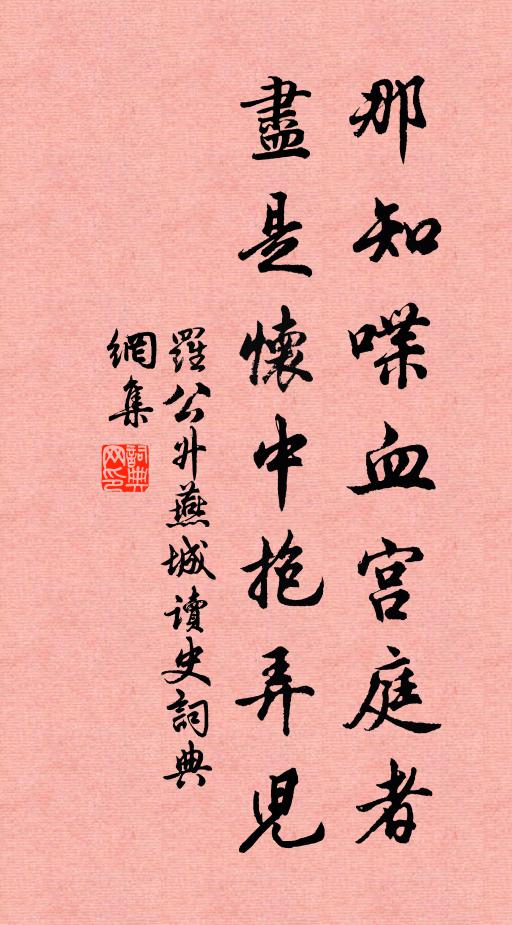 那知喋血宮庭者
盡是懷中抱弄兒
羅公升燕城讀史詞典
網集
詞典
网印